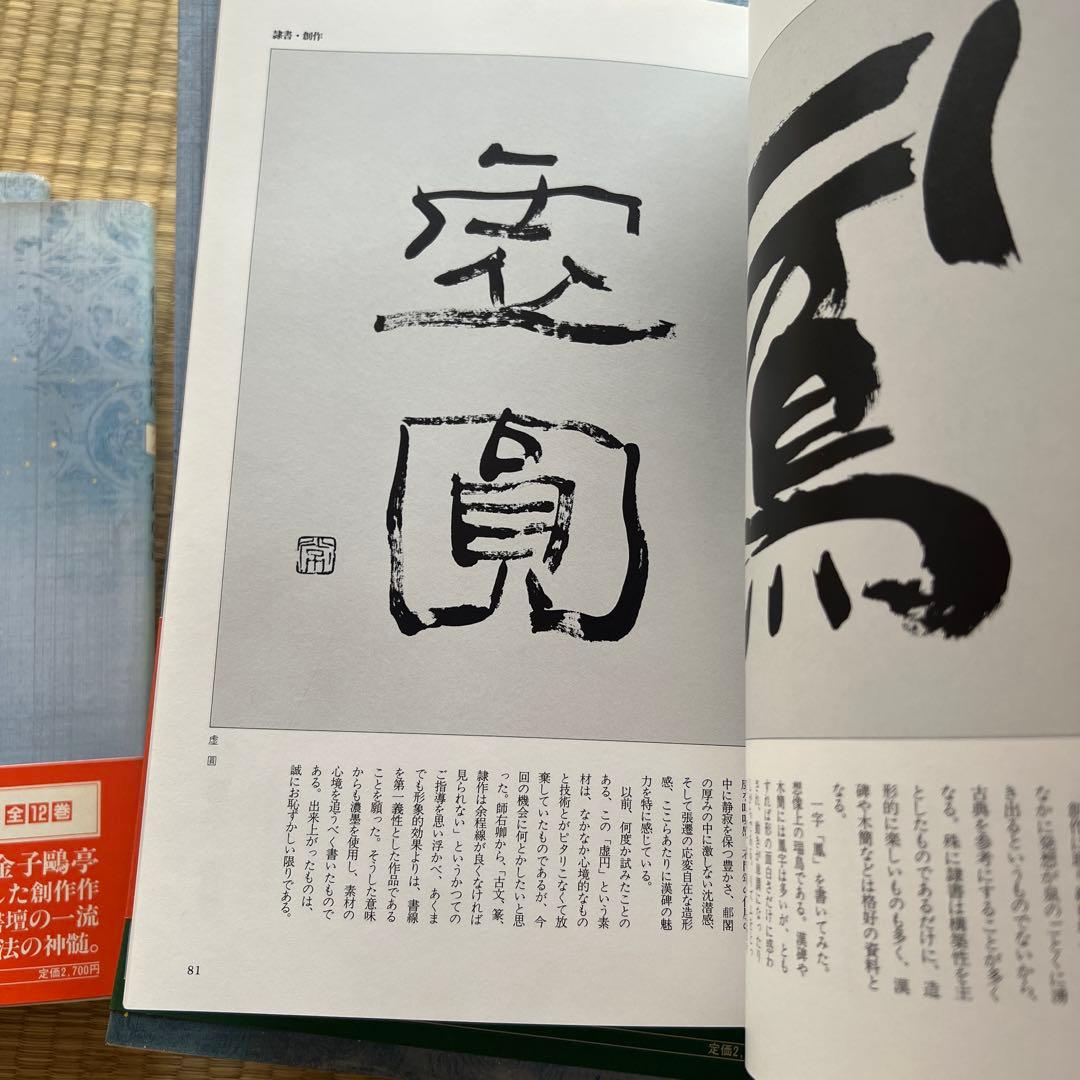 隷書・創作
虚
圓
虚圓
中に静寂を保つ豊かさ、郙閣
の厚みの中に激しない沈潜感、
そして張遷の応変自在な造形
感、ここらあたりに漢碑の魅
力を特に感じている。
以前、何度か試みたことの
ある、この「虚円」という素
材は、なかなか心境的なもの
と技術とがピタリこなくて放
棄していたものであるが、今
回の機会に何とかしたいと思
った。師右卿から、「古文、篆、
隷作は余程線が良くなければ
見られない」というかつての
ご指導を思い浮かべ、あくま
でも形象的効果よりは、書線
を第一義性とした作品である
ことを願った。そうした意味
からも濃墨を使用し、素材の
心境を追うべく書いたもので
ある。出来上がったものは、
誠にお恥ずかしい限りである。
81
鳳
なかに発想が泉のごとくに湧
き出るというものでないから、
古典を参考にすることが多く
なる。殊に隷書は構築性を主
としたものであるだけに、造
形的に楽しいものも多く、漢
碑や木簡などは格好の資料と
なる。
一字「鳳」を書いてみた。
想像上の瑞鳥である。漢碑や
木簡には鳳字は多いが、とも
すれば形の面白さだけに惑わ
全12巻
金子鷗亭
した創作作
書壇の一流
法の神髄。
定価2,700円
定価2,